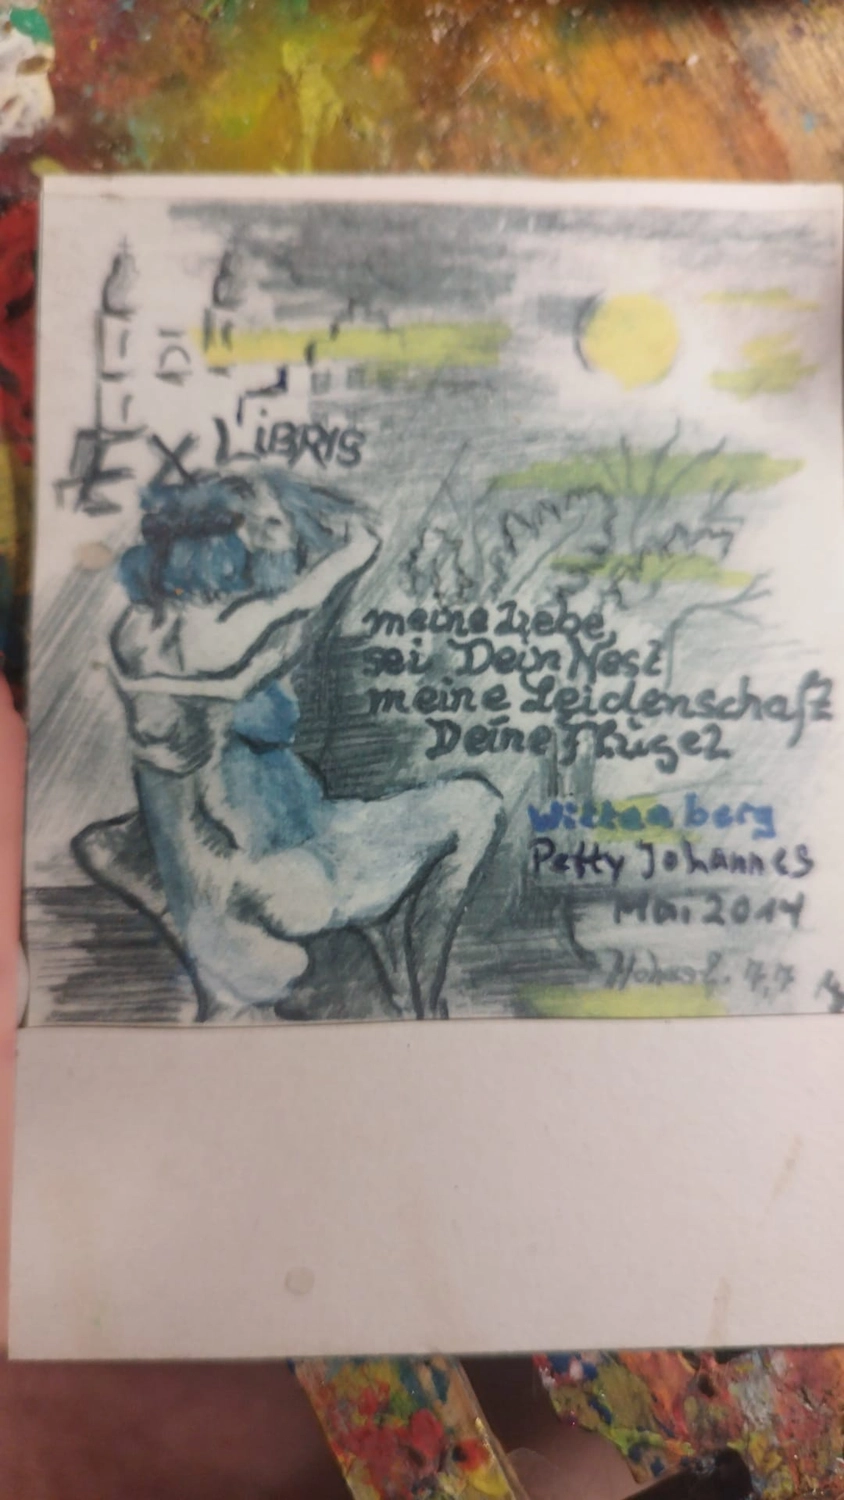 EX LiBRIS
meine Liebe,
sei Dein Nest
meine Leidenschaft
Deine Flügel
Wittenberg
Petty Johannes
Mai 2014